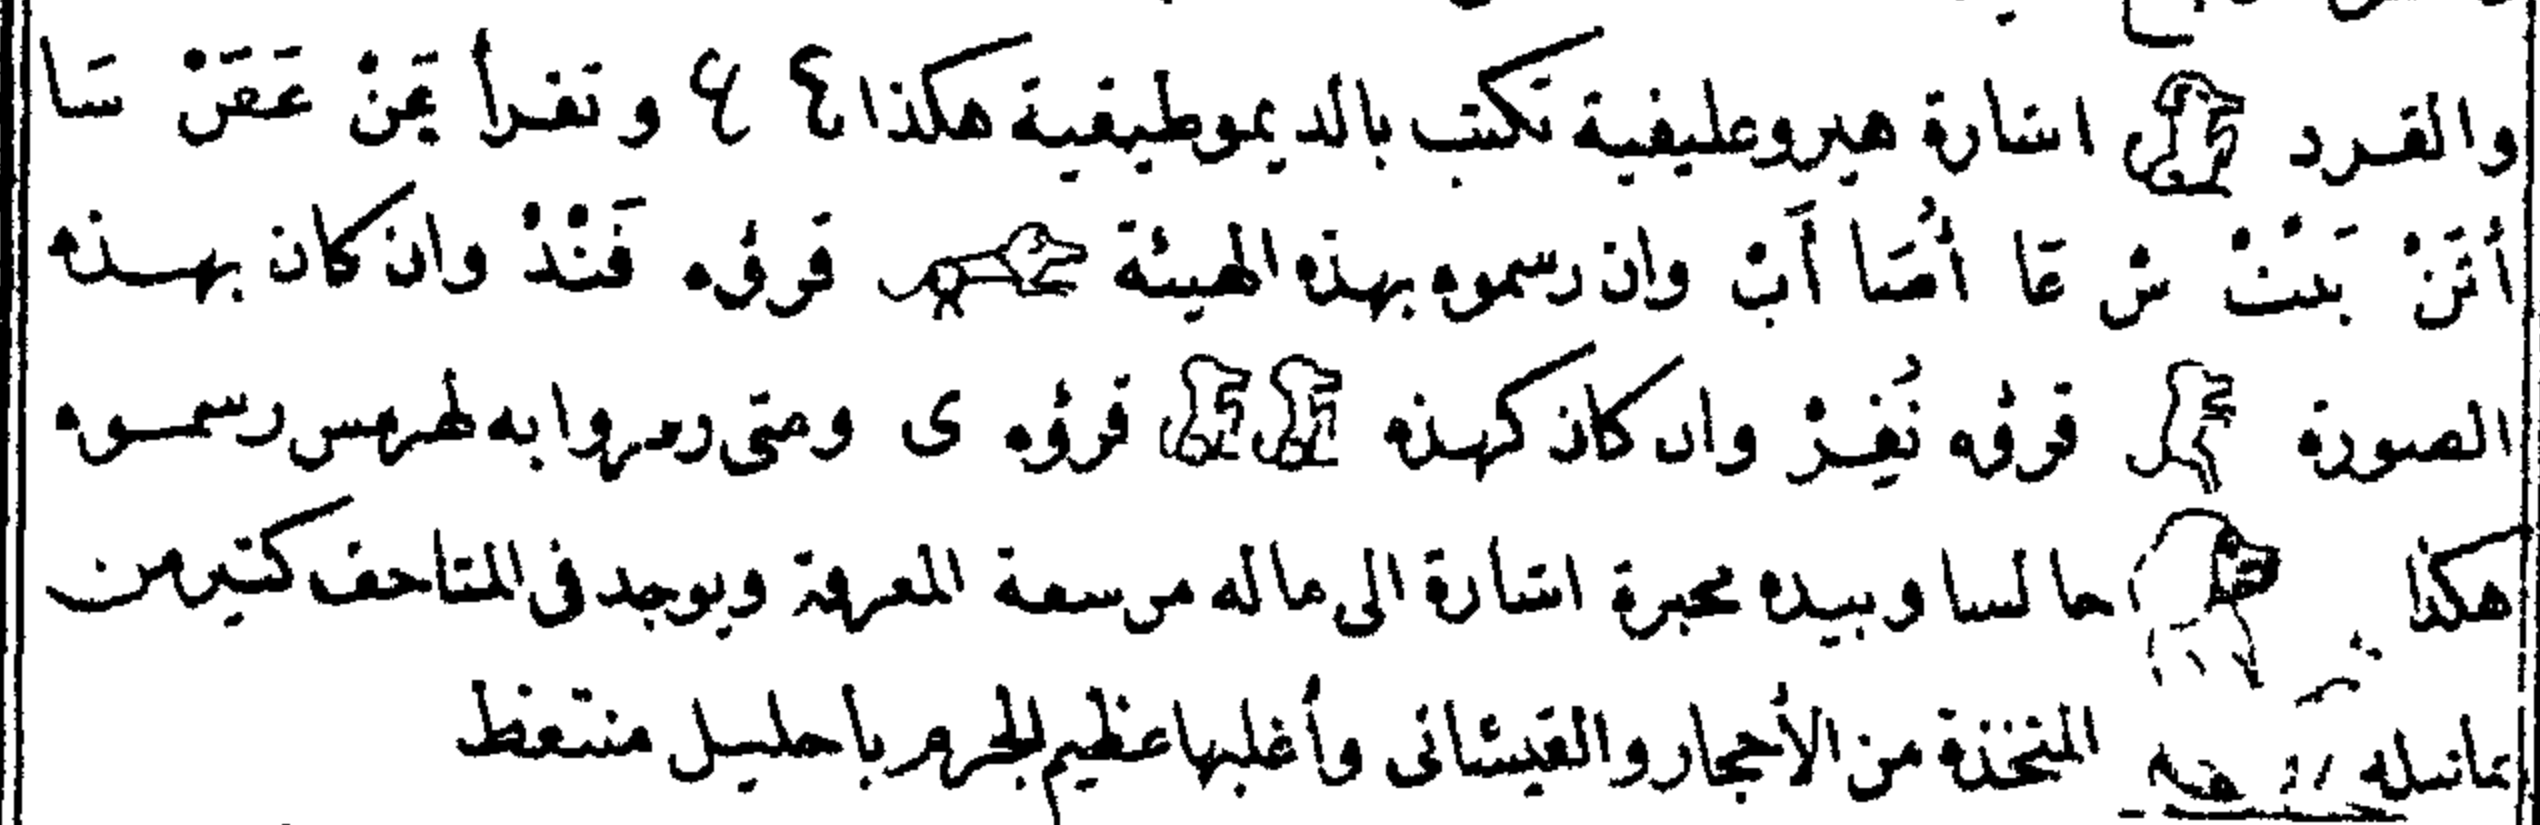 والقرد اشارة هيروغليفية تكتب بالديموطيقية هكذا وتقرأ عَقَنْ سَا
أَثَنْ بَنْتْ شْ عَا أُصَا أَبْ وان رسموه بهذه الهيئة قرؤه قَنْدْ وان كان بهذه
الصورة قرؤه نُفِرْ وان كان كهذه قرؤه ى ومتى رمزوا به لهرمس رسموه
هكذا جالسا وبيده محبرة اشارة الى ماله من سعة المعرفة ويوجد فى المتاحف كثير من
تماثيله المتخذة من الأحجار والقيشانى وأغلبها عظيم الجرم باحليل منتعظ